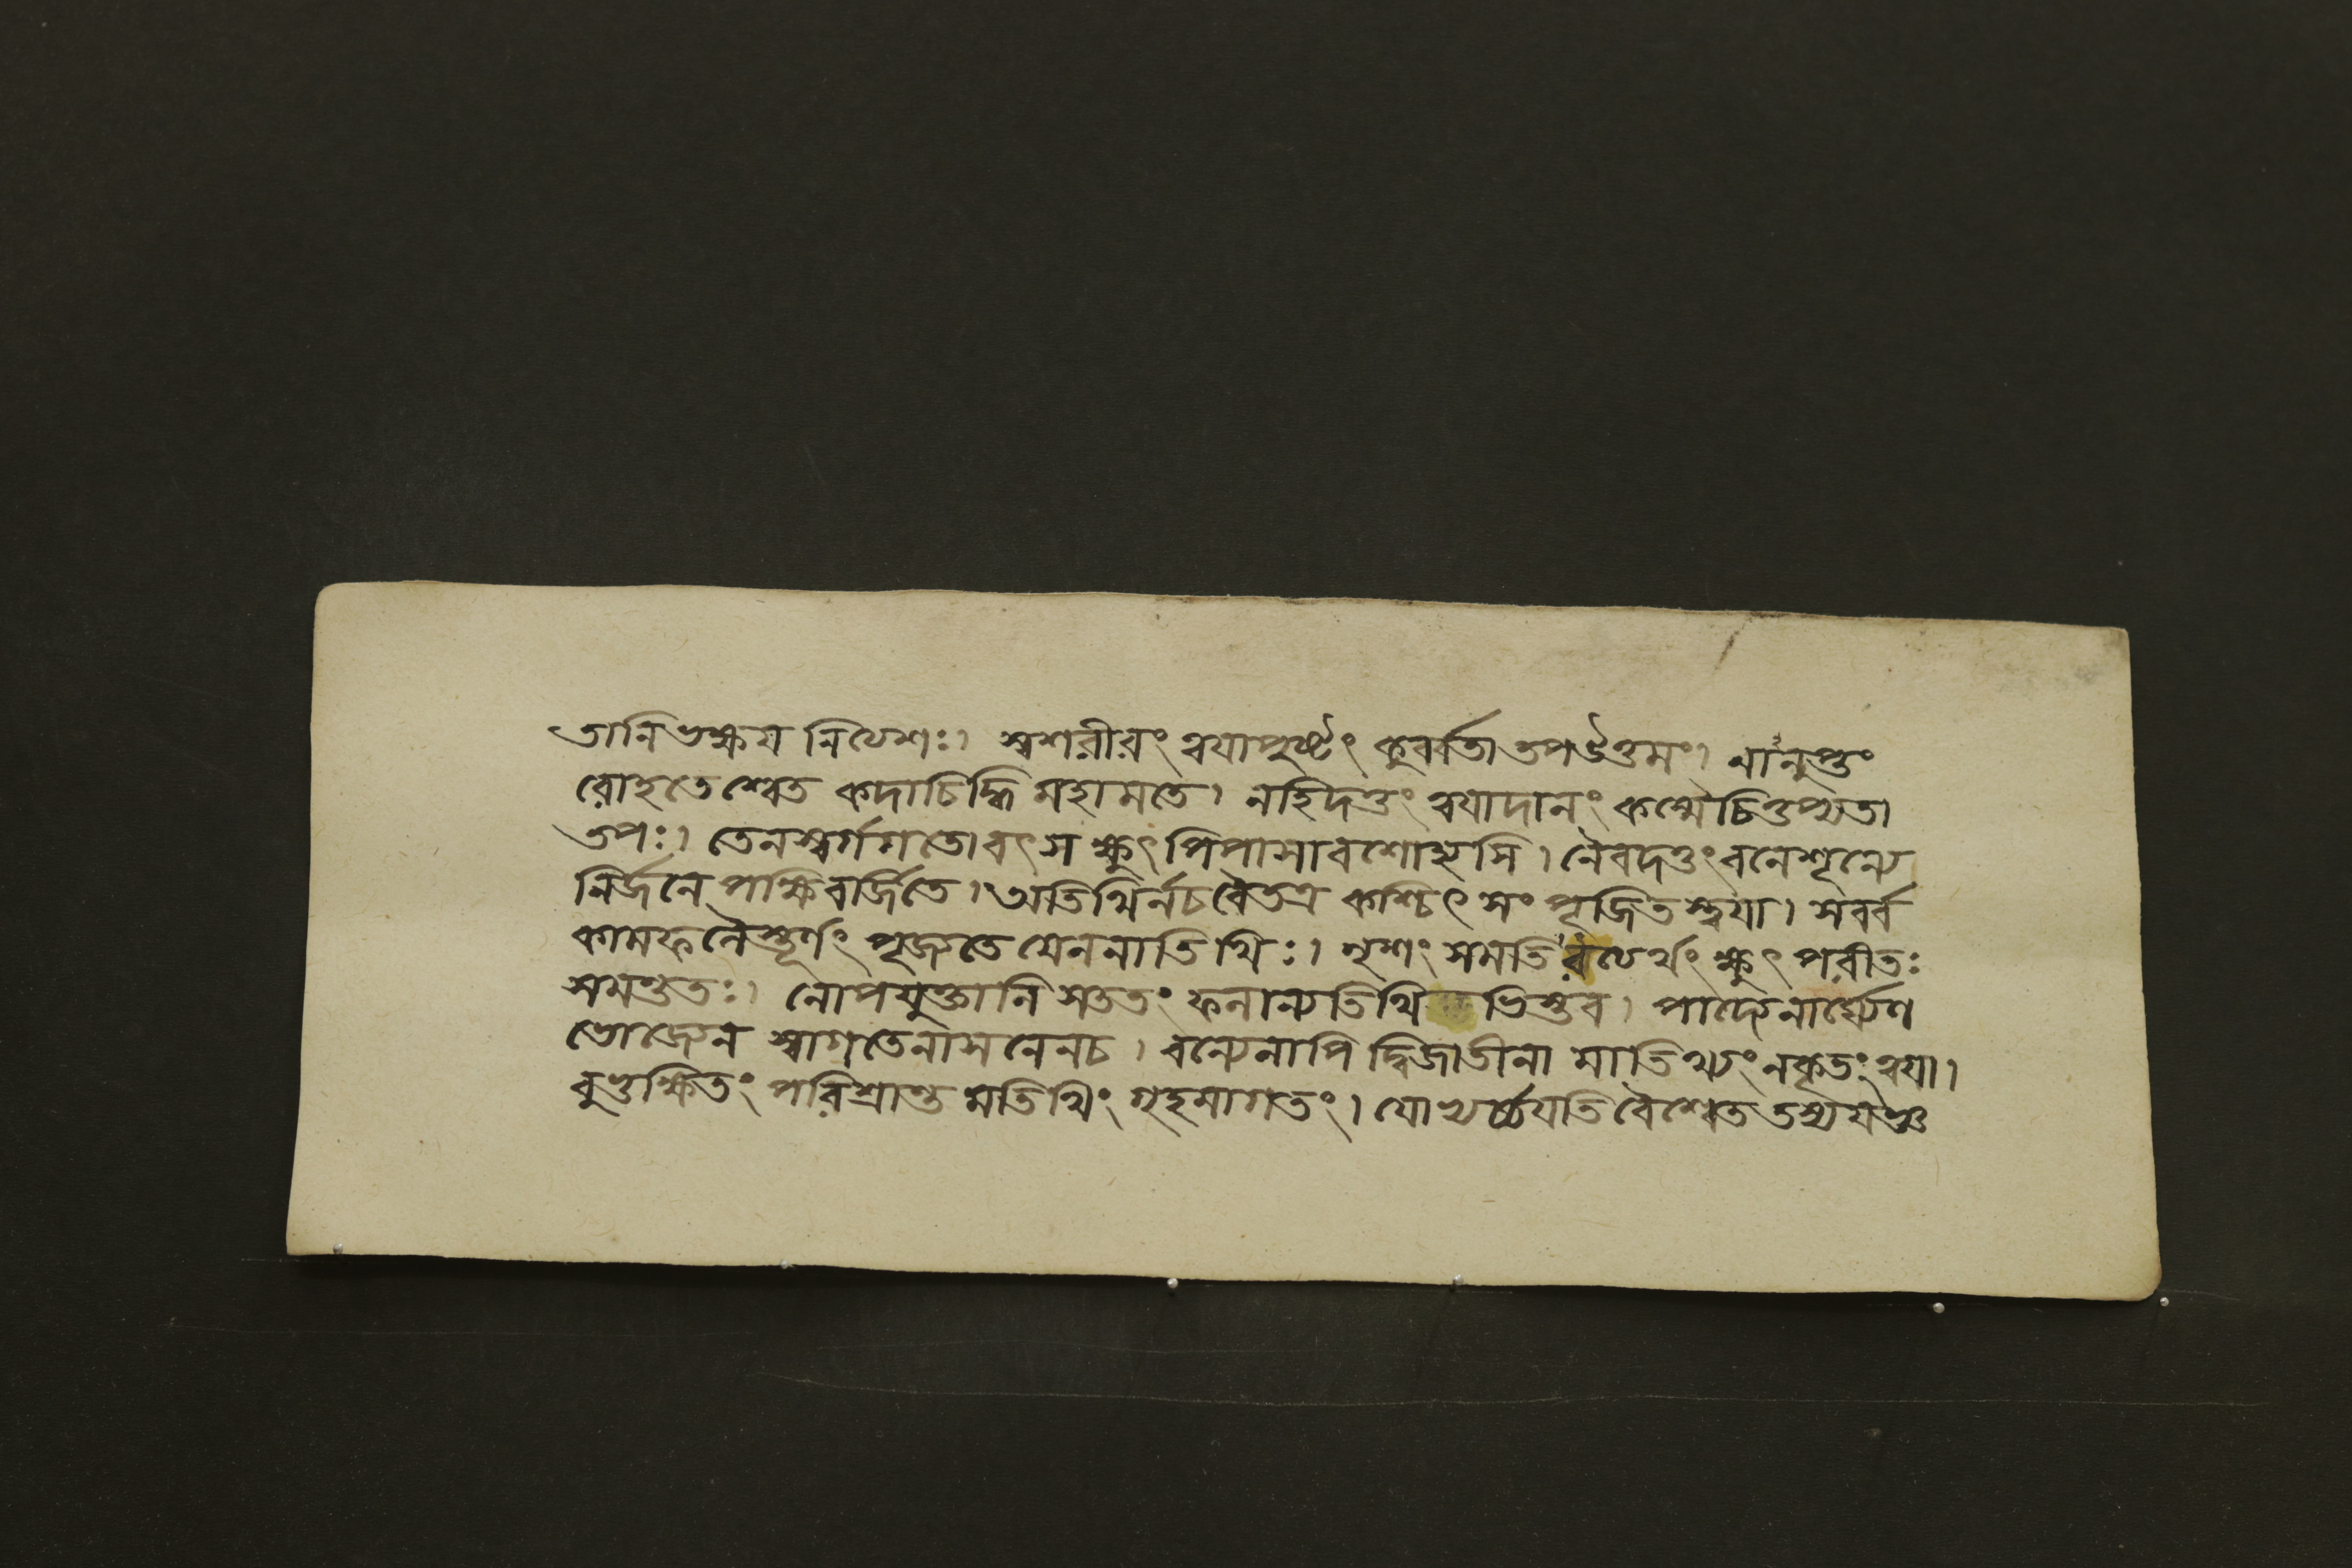 তানিভক্ষয নিত্যেশঃ। স্বশরীরং ত্বযাপুষ্টং কুর্ব্বতা তপউত্তমং। নানুপ্তং
রোহতে শ্বেত কদাচিদ্ধি মহামতে। নহিদত্তং ত্বযাদানং কস্মৈচিত্তপ্যতা
তপঃ। তেনস্বর্গগতো বৎস ক্ষুৎ পিপাসাবশোহ্যসি। নৈবদত্তং বনেশূন্যে
নির্জনে পক্ষিবর্জিতে। অতিথির্নচবৈতত্র কশ্চিৎ সং পূজিত স্ত্বযা। সর্ব্ব
কামফলৈস্তূর্ণং পূজ্যতে যেননাতিথিঃ। ভৃশং সমতি ক্ষুৎ পরীতঃ
সমন্ততঃ। নোপযুক্তানি সততং ফলান্যতিথি ভিস্তব। পাদ্যেনার্ঘ্যেণ
ভোজ্যেন স্বাগতেনাসনেনচ। বন্যেনাপি দ্বিজাতীনা মাতিথ্যং নকৃতং ত্বযা।
বুভুক্ষিতং পরিশ্রান্ত মতিথিং গৃহমাগতং। যোহ্যর্চ্চযতি বৈশ্বেত তস্যযজ্ঞ